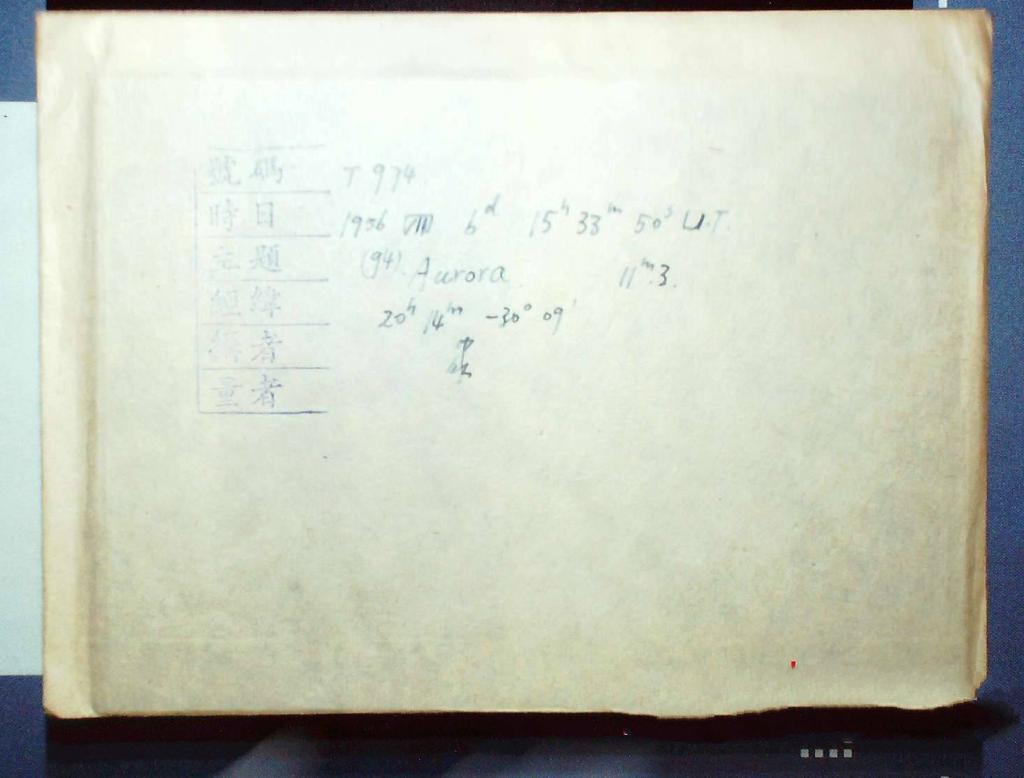 號碼 T 974
時日 1956 VIII 6ᵈ 15ʰ 33ᵐ 50ˢ U.T.
主題 (94) Aurora 11ᵐ.3.
經緯 20ʰ 14ᵐ -30° 09'
攝者
量者